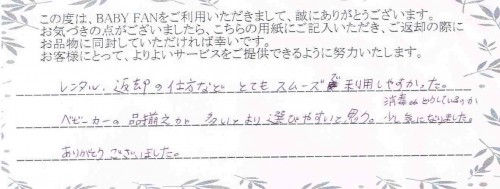 この度は、BABY FANをご利用いただきまして、誠にありがとうございます。
お気づきの点がございましたら、こちらの用紙にご記入いただき、ご返却の際に
お品物に同封していただければ幸いです。
お客様にとって、よりよいサービスをご提供できるように努力いたします。
レンタル、返却の仕方など とても スムーズで 利用しやすかった。
ベビーカーの品揃えが 多いと より 選びやすいと思う。
消毒はどうしているのか
少し気になりました。
ありがとう ございました。